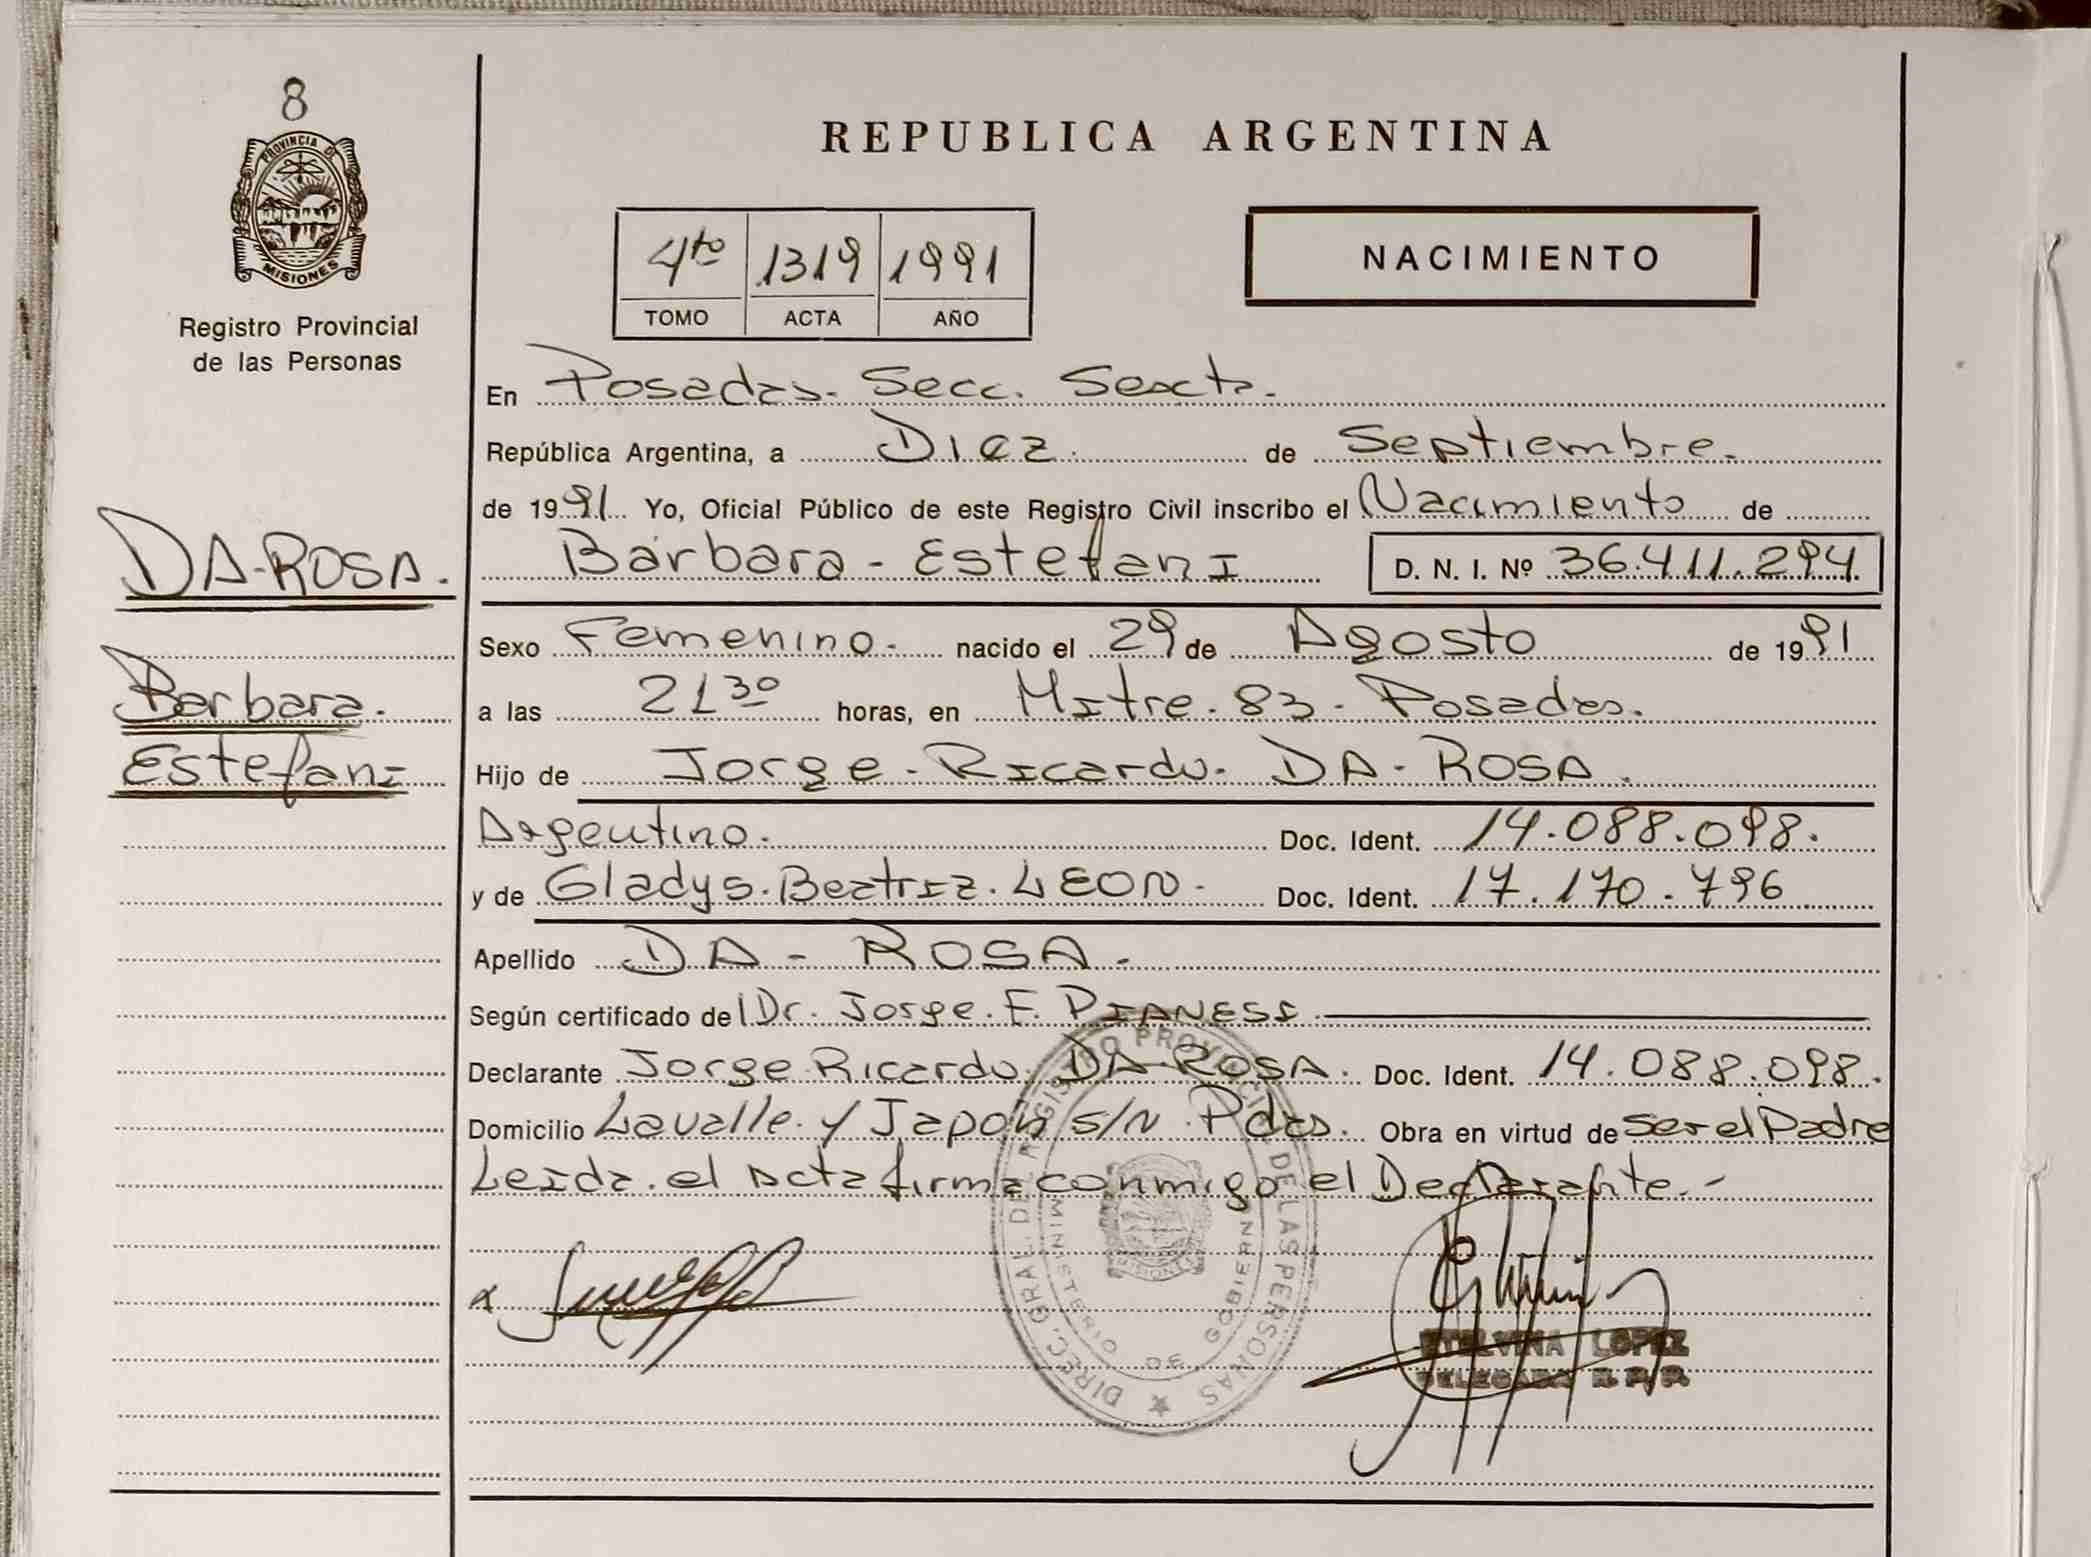 8
PROVINCIA DE
MISIONES
Registro Provincial
de las Personas
DA-ROSA.
Barbara.
Estefani
REPUBLICA ARGENTINA
4to 1319 1991
TOMO ACTA AÑO
NACIMIENTO
En Posadas. Secc. Sexta.
República Argentina, a Diez. de Septiembre.
de 1991 Yo, Oficial Público de este Registro Civil inscribo el Nacimiento de
Bárbara - Estefani D. N. I. Nº 36.411.294
Sexo Femenino. nacido el 29 de Agosto de 1991
a las 21 30 horas, en Mitre. 83 - Posadas.
Hijo de Jorge. Ricardo. DA - ROSA.
Argentino. Doc. Ident. 14.088.098.
y de Gladys. Beatriz. LEON. Doc. Ident. 17.170.796
Apellido DA - ROSA.
Según certificado del Dr. Jorge. F. PIANESI.
Declarante Jorge Ricardo. DA-ROSA. Doc. Ident. 14.088.098.
Domicilio Lavalle. y Japón s/N. Pdas. Obra en virtud de ser el Padre
Leida. el Acta firma conmigo el Declarante.-
DIREC. GRAL. DEL REGISTRO PROVINCIAL DE LAS PERSONAS
MINISTERIO DE GOBIERNO
MISIONES
ETELVINA LOPEZ
DELEGADA R. P. P.